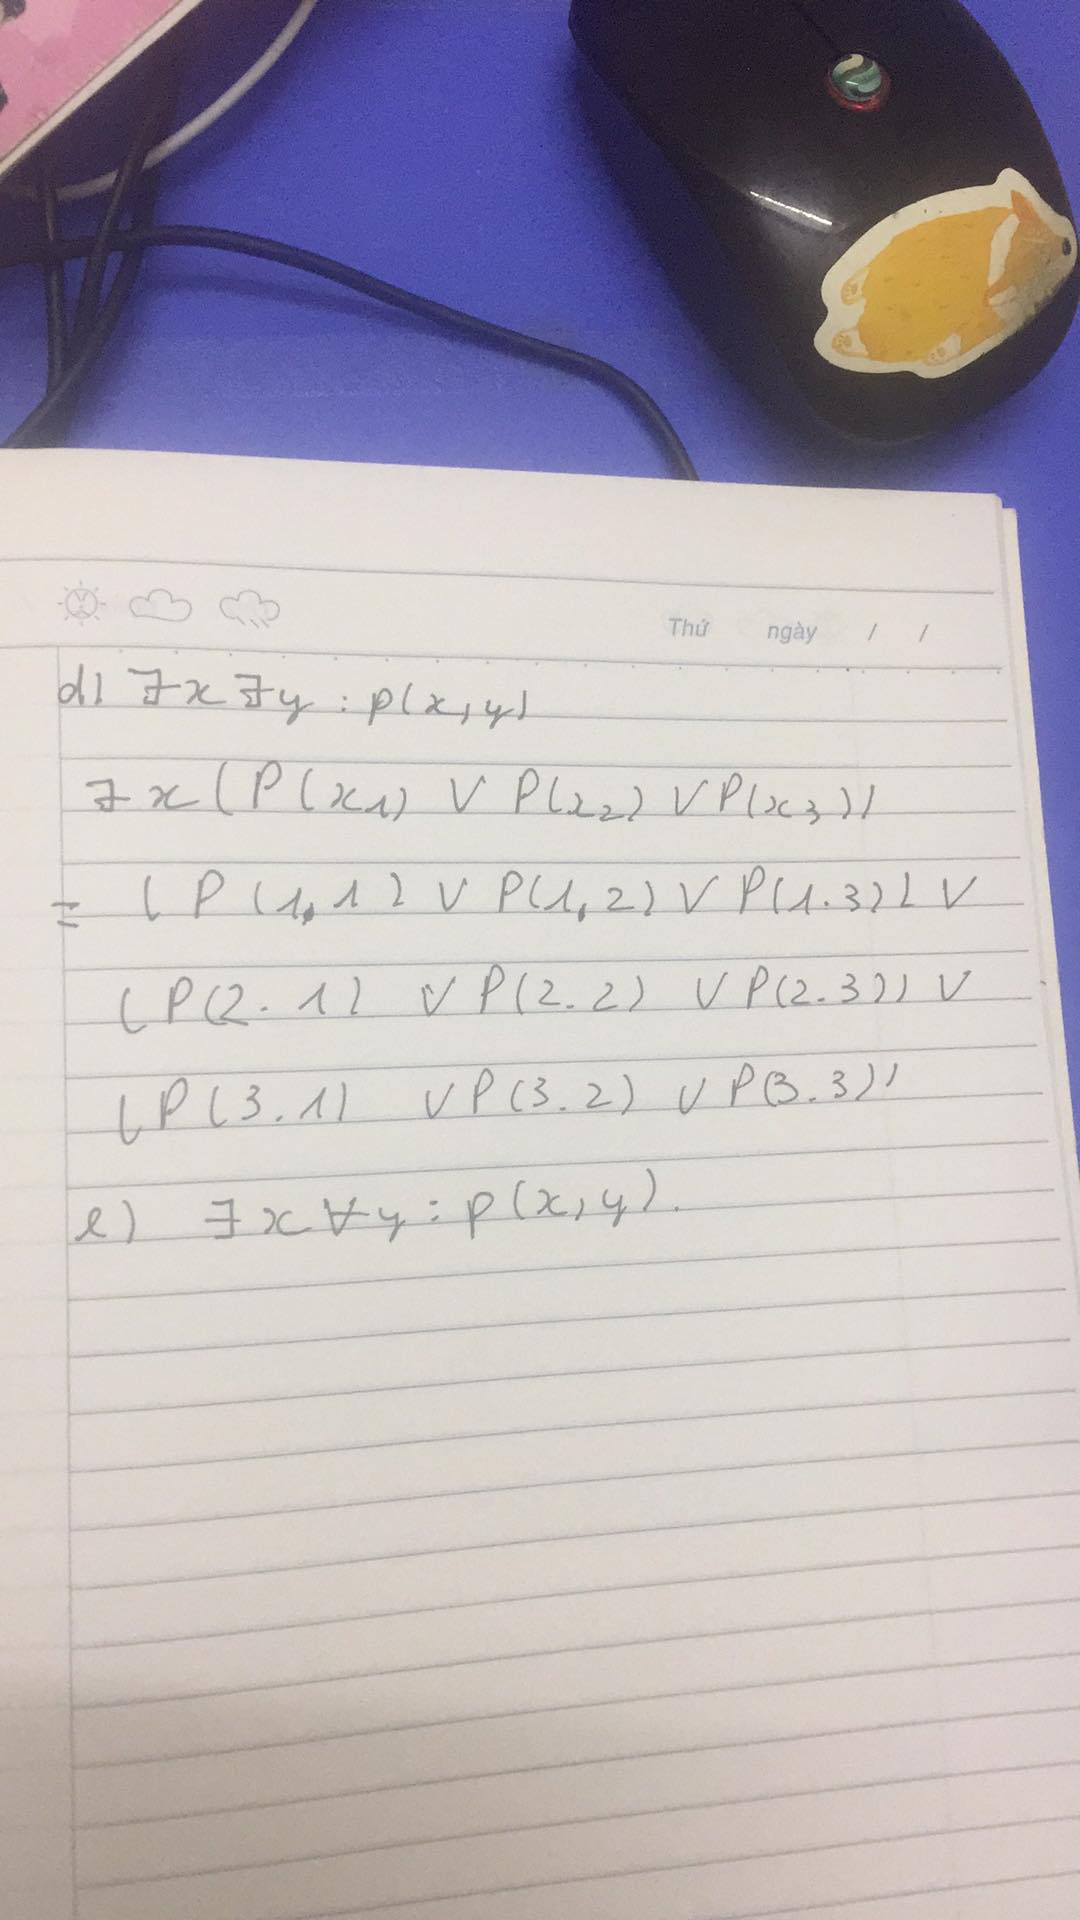 Thứ ngày / /
d) ∃x ∃y : p(x,y)
∃x (P(x1) ∨ P(x2) ∨ P(x3))
= (P(1,1) ∨ P(1,2) ∨ P(1.3)) ∨
(P(2.1) ∨ P(2.2) ∨ P(2.3)) ∨
(P(3.1) ∨ P(3.2) ∨ P(3.3))
e) ∃x ∀y : p(x,y).